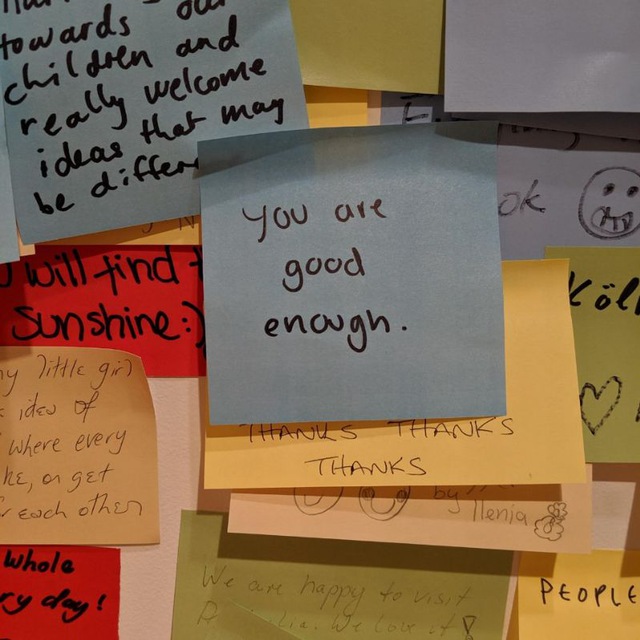 towards
children and
really welcome
ideas that may
be
You are
good
enough.
ok
will find
Sunshine:)
Köl
little girl
idea of
where every
or get
each other
THANKS THANKS
THANKS
by
Ilenia
whole
day!
We are happy to visit
We love it!
PEOPLE